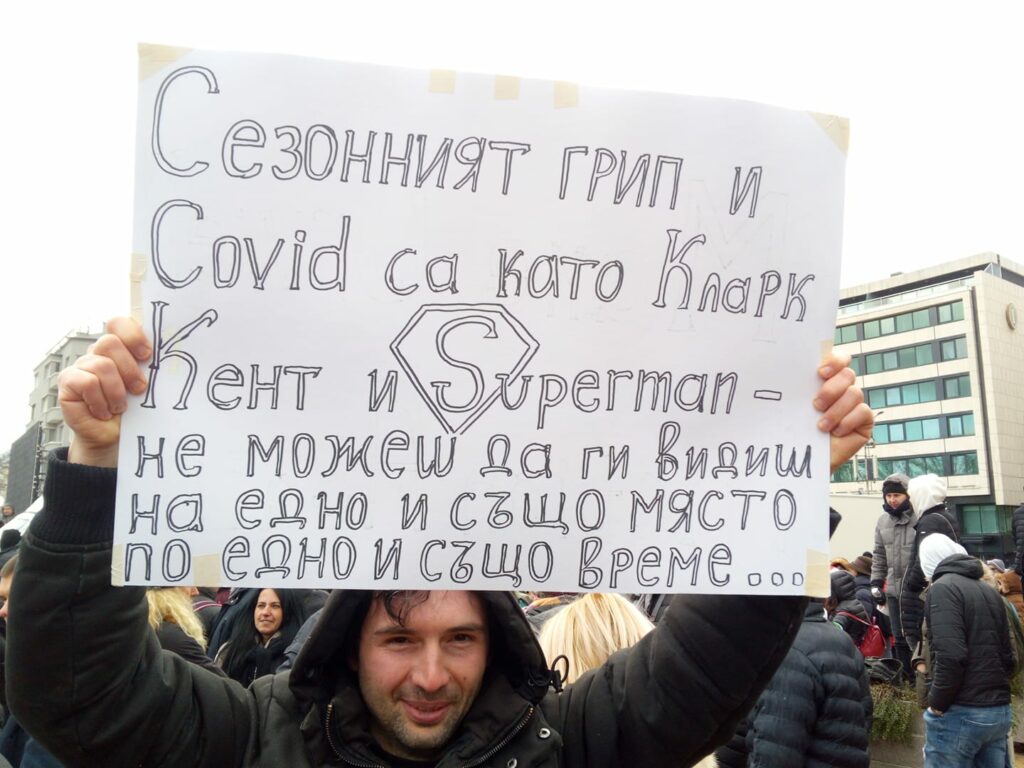 Сезонният грип и
Covid са като Кларк
Кент и Superman -
не можеш да ги видиш
на едно и също място
по едно и също време...